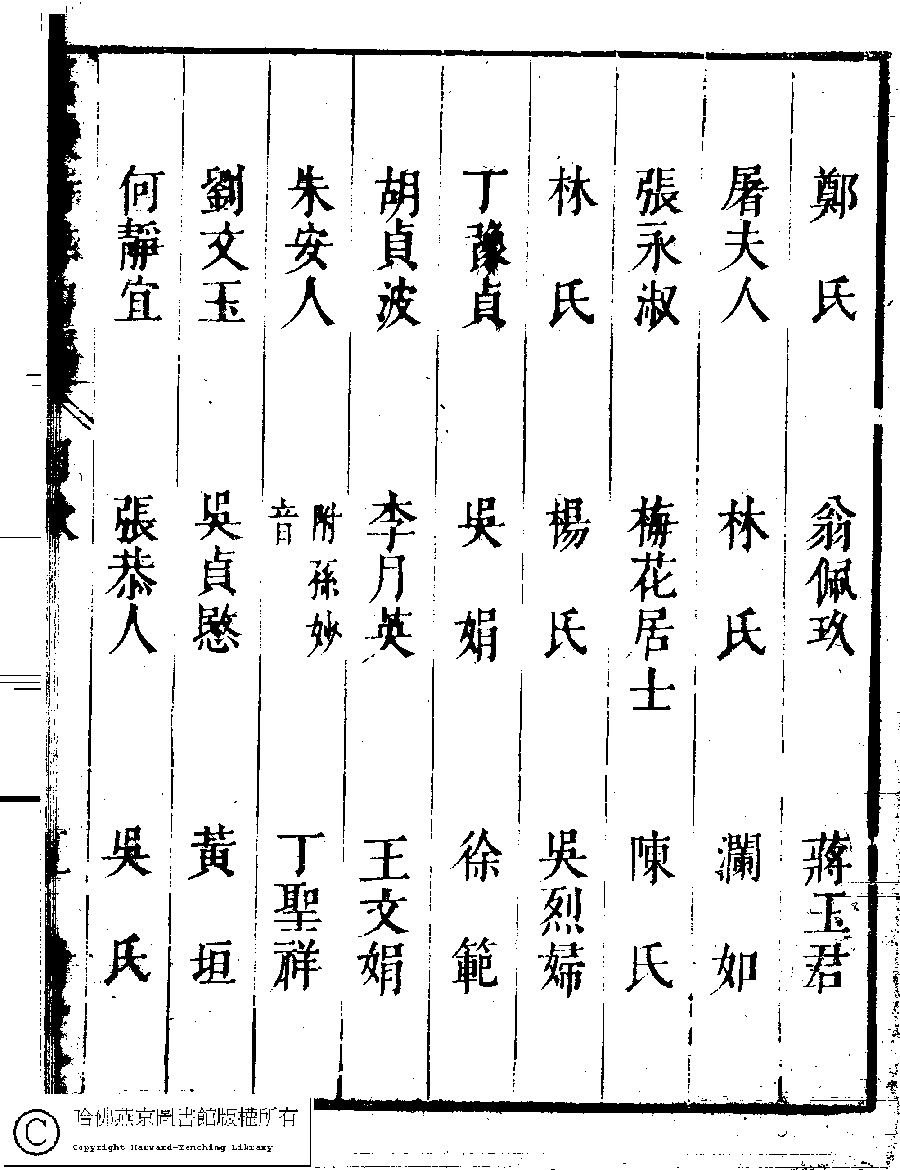 鄭氏　翁佩玖　蔣玉君
屠夫人　林氏　瀾如
張永淑　梅花居士　陳氏
林氏　楊氏　吳烈婦
丁豫貞　吳娟　徐範
胡貞波　李月英　王文娟
朱安人　附孫妙音　丁聖祥
劉文玉　吳貞慜　黃垣
何靜宜　張恭人　吳氏
哈佛燕京圖書館版權所有
Copyright Harvard-Yenching Library